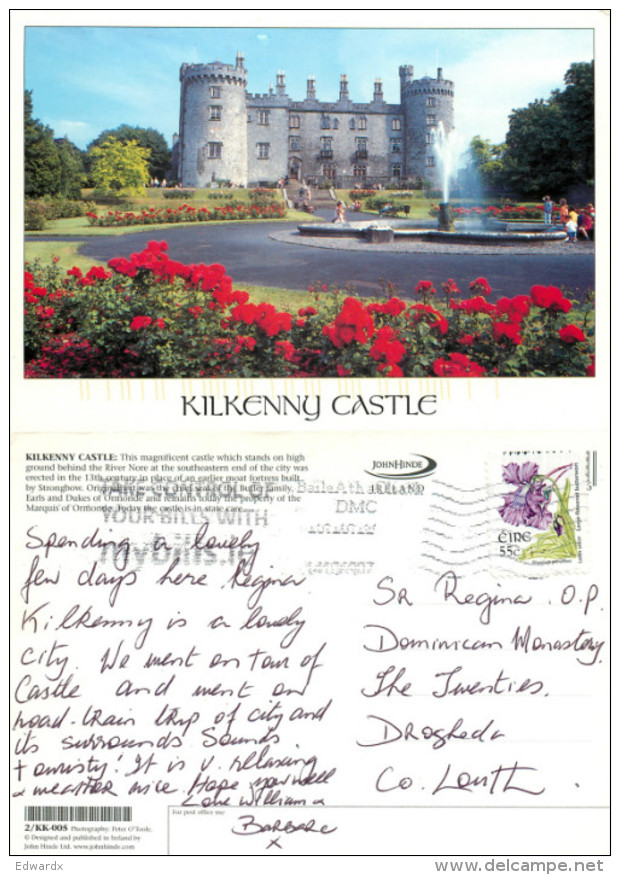 KILKENNY CASTLE
KILKENNY CASTLE: This magnificent castle which stands on high
ground behind the River Nore at the southeastern end of the city was
erected in the 13th century in place of an earlier moat fortress built
by Strongbow. Originally it was the chief seat of the Butler family,
Earls and Dukes of Ormonde and remains today the property of the
Marquis' of Ormonde. Today the castle is in state care.
JOHN HINDE
IRELAND
YOUR BILLS WITH
mybills.ie
Baile Atha
DMC
ÉIRE
55c
Large-flowered butterwort
Spending a lovely
few days here Regina.
Kilkenny is a lovely
city. We went on tour of
Castle and went on
road-train trip of city and
its surrounds. Sounds
touristy! It is v. relaxing
& weather nice. Hope you well
Love William &
Barbara
x
Sr Regina. O.P.
Dominican Monastery,
The Twenties.
Drogheda
Co. Louth.
2/KK-005 Photography: Peter O'Toole.
© Designed and published in Ireland by
John Hinde Ltd. www.johnhinde.com
For post office use
Edwardx
www.delcampe.net